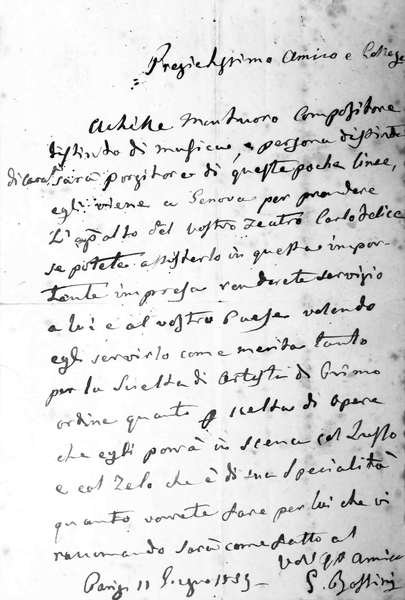 Pregiatissimo Amico e Collega
Achille Montuoro Compositore
distinto di musica, e persona distinta
di caral sarà porgitore di queste poche linee,
egli viene a Genova per prendere
L'appalto del vostro Teatro Carlo Felice
se potete assisterlo in questa impor-
tante impresa renderete servizio
a lui e al vostro Paese volendo
egli servirlo come merita tanto
per la scielta di Artisti di Primo
ordine quanto p scelta di opere
che egli porrà in scena col Lusso
e col Zelo che è di sua Specialità
quanto vorrete fare per lui che vi
raccomando sarà come fatto al
Vos Amico
Parigi 11 Giugno 185
G. Rossini